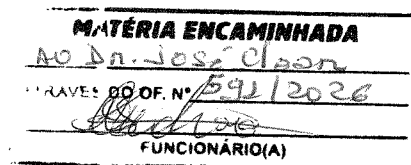 MATÉRIA ENCAMINHADA
AO Dr. José Cloon
TRAVES DO OF. Nº 591/2026
FUNCIONÁRIO(A)